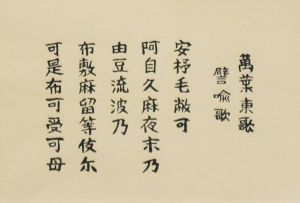 萬葉東歌
譬喩歌
安抒毛敝可
阿自久麻夜末乃
由豆流波乃
布敷麻留等伎尓
可是布可受可母